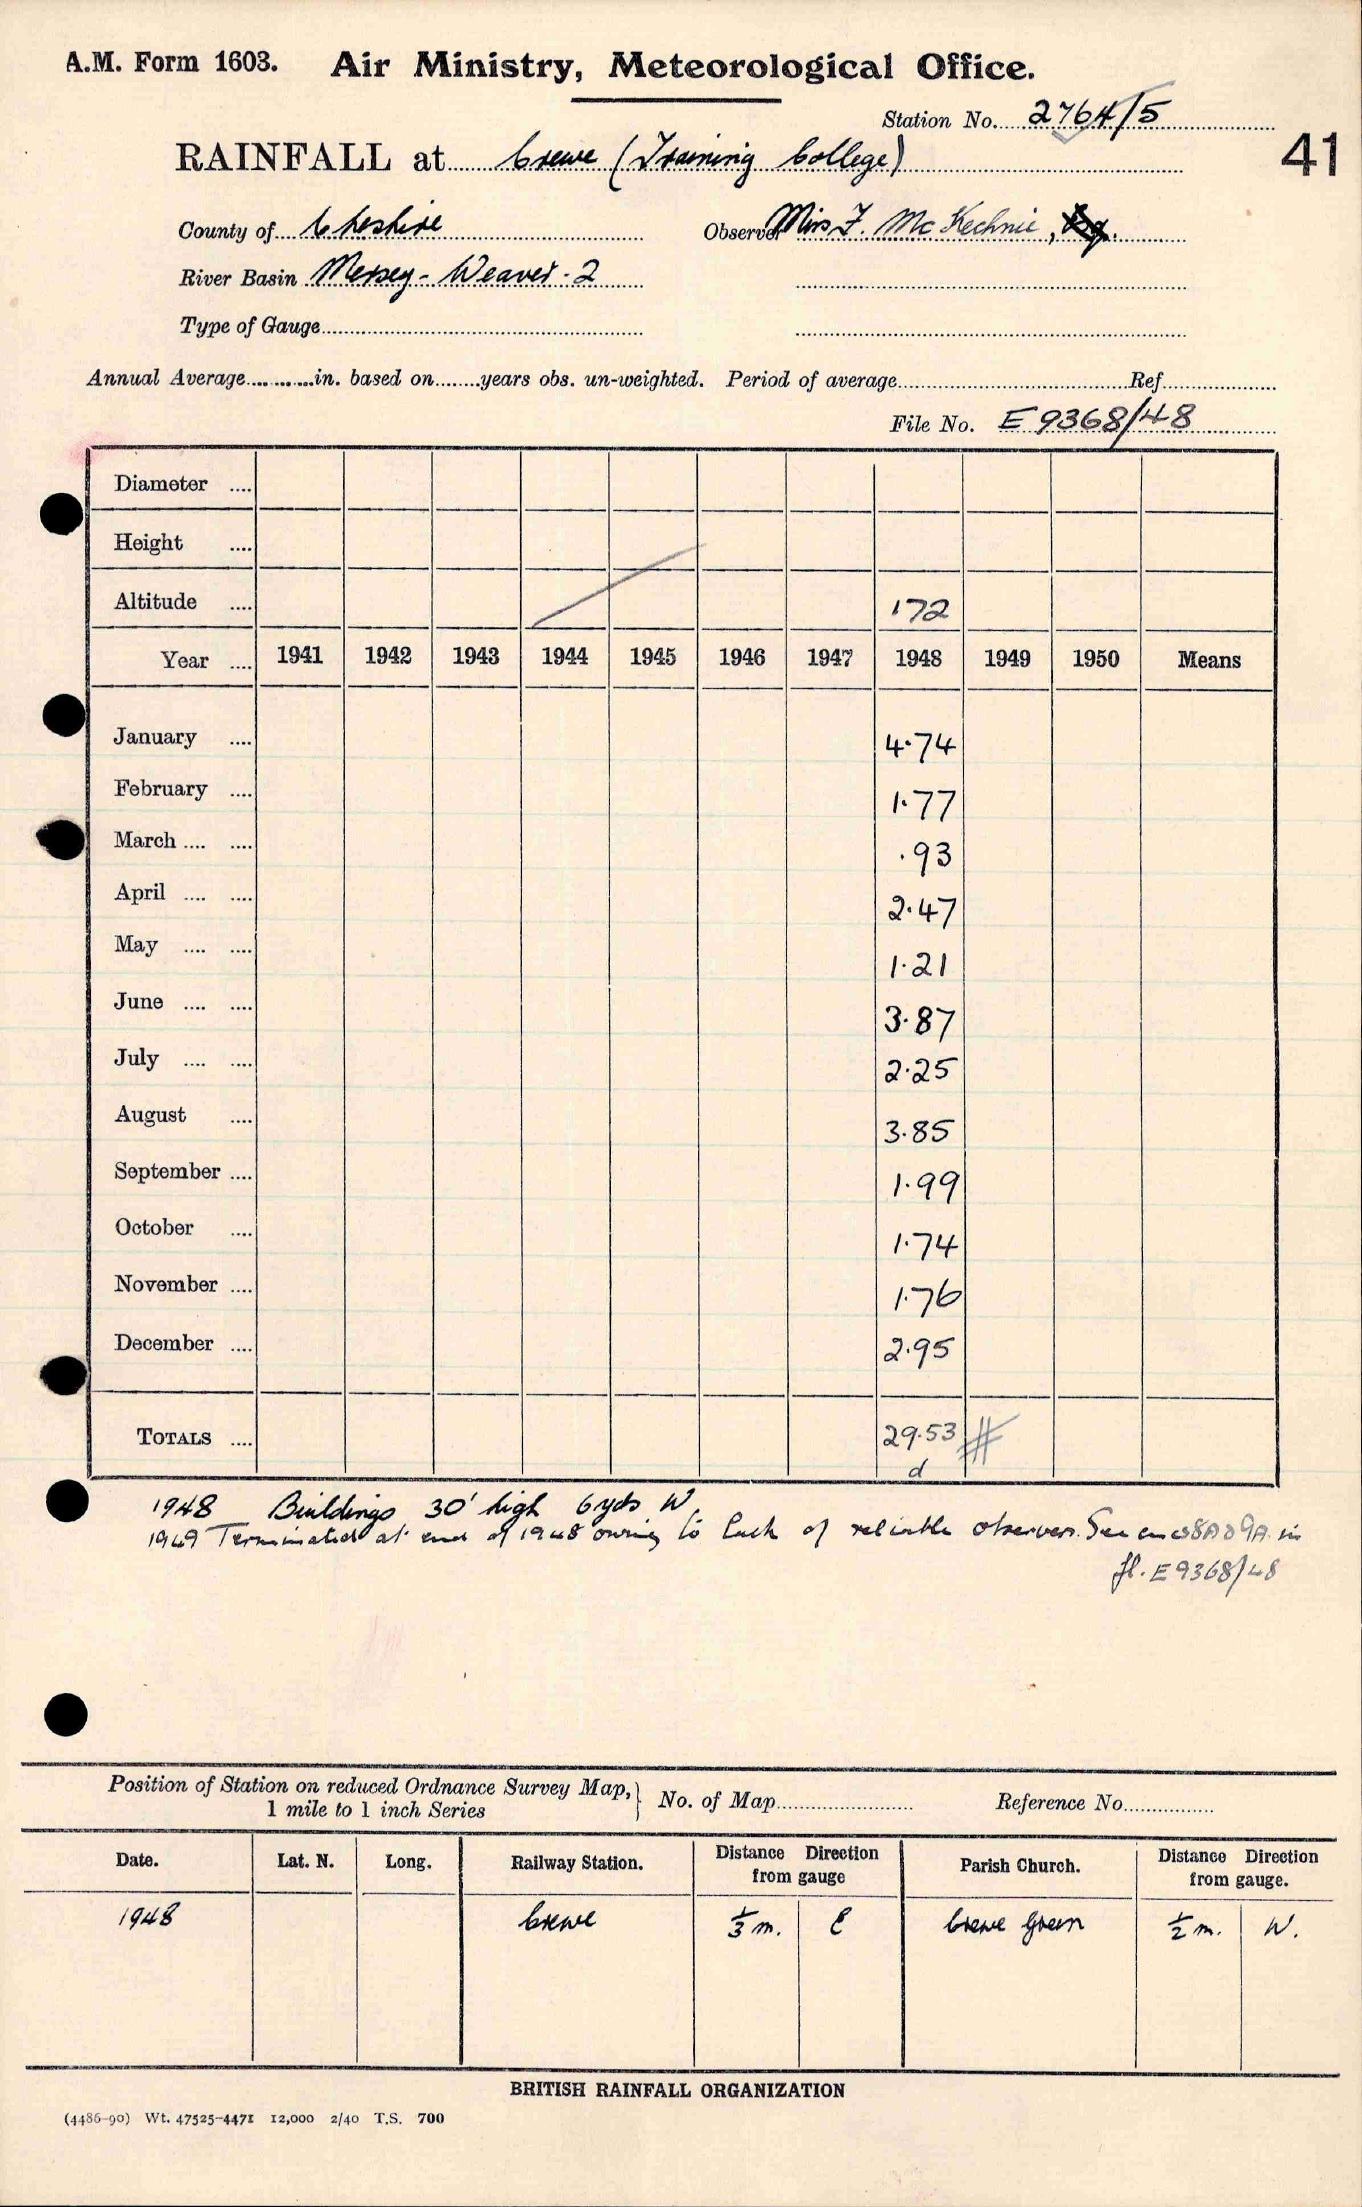 A.M. Form 1603. Air Ministry, Meteorological Office.
Station No. 2764/5
41
RAINFALL at Crewe (Training College)
County of Cheshire Observer Miss F. McKechnie, Esq.
River Basin Mersey - Weaver - 2
Type of Gauge
Annual Average in. based on years obs. un-weighted. Period of average Ref
File No. E 9368/48
Diameter ....
Height ....
Altitude .... 172
Year .... 1941 1942 1943 1944 1945 1946 1947 1948 1949 1950 Means
January .... 4.74
February .... 1.77
March .... .... .93
April .... .... 2.47
May .... .... 1.21
June .... .... 3.87
July .... .... 2.25
August .... 3.85
September .... 1.99
October .... 1.74
November .... 1.76
December .... 2.95
TOTALS .... 29.53 #
d
1948 Buildings 30' high 6 yds W.
1949 Terminated at end of 1948 owing to lack of reliable observers. See 9A in
fl. E 9368/48
Position of Station on reduced Ordnance Survey Map,
1 mile to 1 inch Series } No. of Map Reference No.
Date. Lat. N. Long. Railway Station. Distance Direction from gauge Parish Church. Distance Direction from gauge.
1948 Crewe 1/3 m. E Crewe Green 1/2 m. W.
BRITISH RAINFALL ORGANIZATION
(4486-90) Wt. 47525-4471 12,000 2/40 T.S. 700